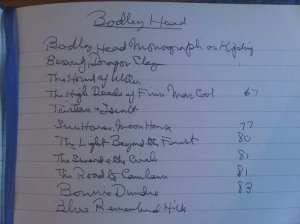 Bodley Head
Bodley Head Monograph on Kipling
Beowulf: Dragon Slayer
The Hound of Ulster
The High Deeds of Finn Mac Cool 67
Tristan & Iseult
Sun Horse, Moon Horse 77
The Light Beyond the Forest 80
The Sword & the Circle 81
The Road to Camlann 81
Bonnie Dundee 83
Blue Remembered Hills